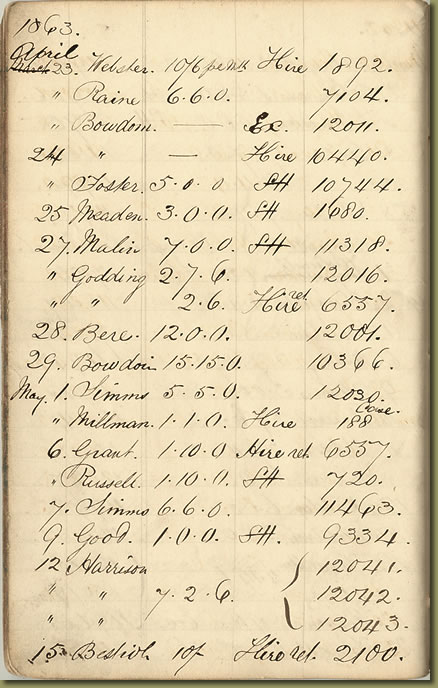 1863.
April
March 23. Webster. 10/6 per Mth Hire 1892.
" Raine 6.6.0. 7104.
" Bowdoin. — Ex. 12011.
24 " — Hire 10440.
" Foster. 5.0.0 SH 10744.
25 Meaden. 3.0.0. SH 1680.
27. Malin 7.0.0. SH 11318.
" Godding 2.7.6. 12016.
" " 2.6. Hire ret. 6557.
28. Bere. 12.0.0. 12001.
29. Bowdoin 15.15.0. 10366.
May. 1. Simms 5.5.0. 12030.
" Millman. 1.1.0. Hire 188 Case.
6. Grant. 1.10.0 Hire ret. 6557.
" Russell. 1.10.0. SH 720.
7. Simms 6.6.0. 11463.
9. Good. 1.0.0. SH. 9334.
12 Harrison 12041.
" " 7.2.6. 12042.
" " 12043.
15. 10/ Hire ret. 2100.